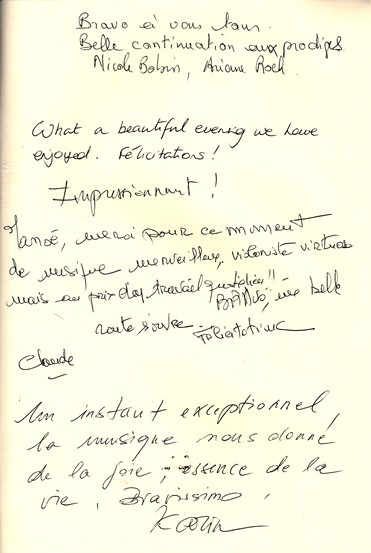 Bravo à vous tous.
Belle continuation aux prodiges.
Nicole Bobin, Ariane Roch.
What a beautiful evening we have
enjoyed. Félicitations!
Impressionnant!
merci pour ce moment
de musique merveilleux, violoniste virtuose
mais au prix du travail quotidien!!
BRAVO, une belle
route s'ouvre Félicitations
Claude
Un instant exceptionnel,
la musique nous donne
de la joie, essence de la
vie. Bravissimo.
Karin